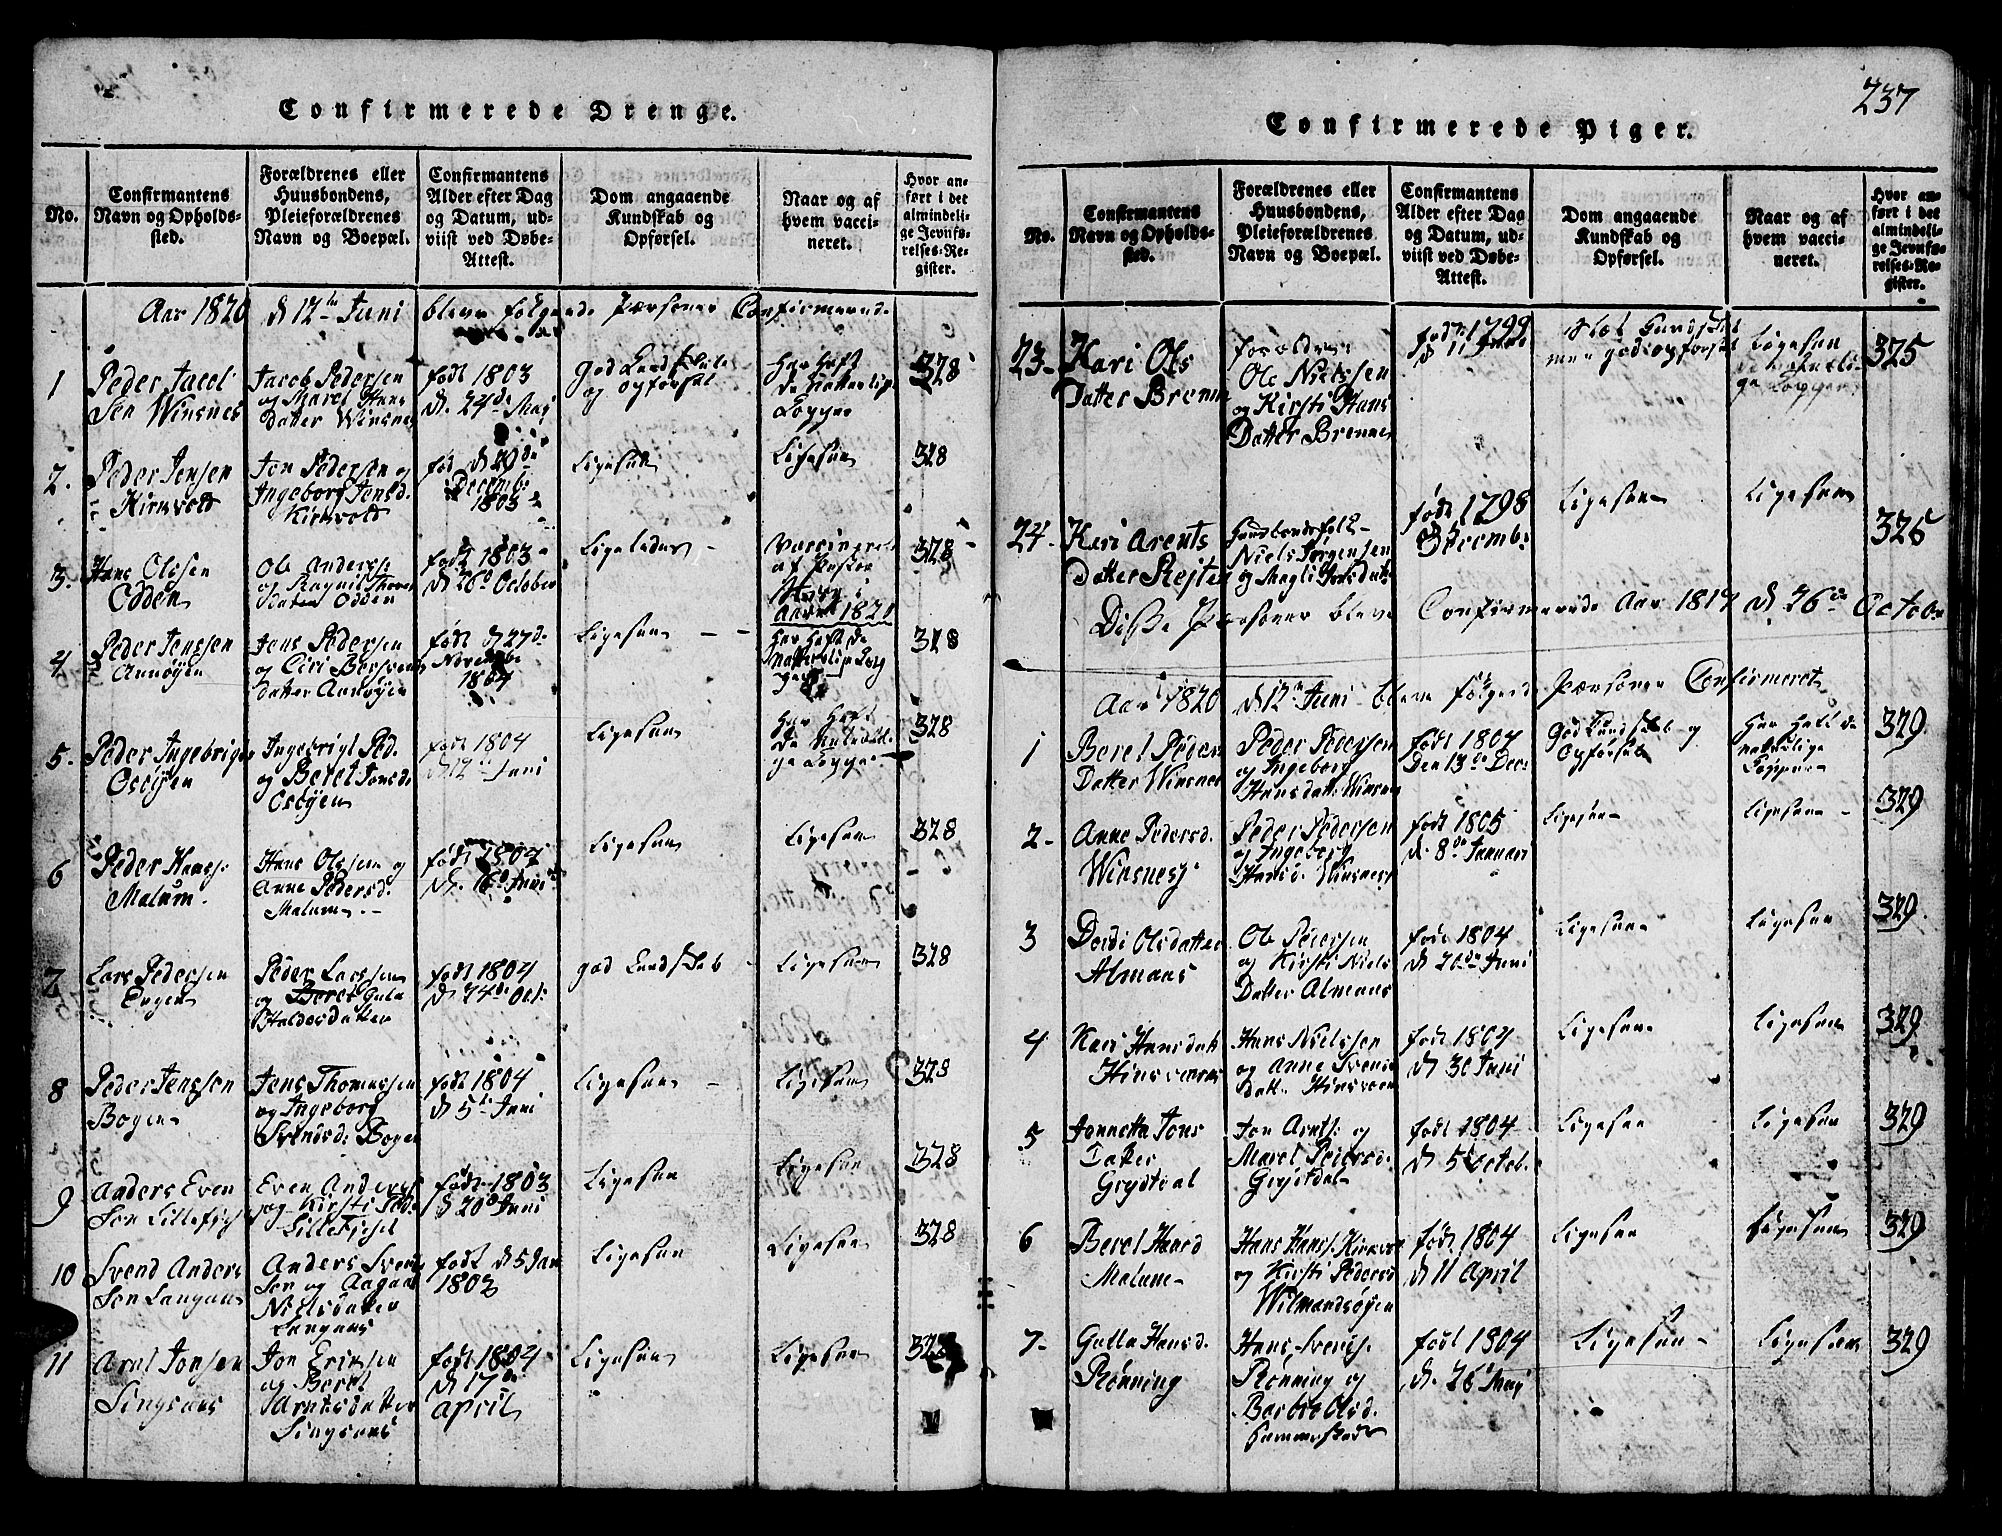 Confirmerede Drenge.
No.
Confirmantens
Navn og Opholds-
sted.
Forældrenes eller
Huusbondens,
Pleieforældrenes
Navn og Boepæl.
Confirmantens
Alder efter Dag
og Datum, ud-
viist ved Døbe-
Attest.
Dom angaaende
Kundskab og
Opførsel.
Naar og af
hvem vacci-
neret.
Hvor an-
ført i det
almindeli-
ge Jevnfø-
relses-Re-
gister.
Aar 1820 d 12te Juni bleve følgende Personer Confirmerede
1
Peder Jacob
Sen Winsnes
Jacob Pedersen
og Maret Hans
Datter Winsnes
født 1803
d. 24de Maj
god Kundskab
og opførsel
har haft
de naturlige
Kopper
328
2.
Peder Jensen
Kirkvold
Jon Pedersen og
Ingeborg Jensd.
Kirkvold
fød d 29de
Decemb:
1803
Ligesaa
Ligesaa
328
3.
Hans Olssen
Odden
Ole Anderss:
og Ragnil
Datter Odden
født 1803
d 26d October
Ligeledes
Vaccineret
af
Aaret 1821
328
4
Peder Jenssen
Aunøyen
Jens Pedersen
og Ciri
datter Aunøyen
født d 27de
Novembe
1804
Ligesaa
har haft de
naturlige
328
5.
Peder Ingebrigts
Osøyen
Ingebrigt Ped.
og Beret Jonsd:
Osøyen
født 1804
d 12te Juni
Ligesaa
har haft
de naturli-
ge Kopper
328
6
Peder Hanss:
Malum.
Hans Olssen og
Anne Pedersd.
Malum
født 1804
d. 16d Juni
Ligesaa
Ligesaa
328
7
Lars Pedersen
Engen
Peder Larssen
og Beret Gula
Haldorsdatter
født 1804
d 24de Oct:
god Kundskab
Ligesaa
328
8
Peder Jenssen
Bogen
Jens Thomassen
og Ingeborg
Svendsd: Bogen
født 1804
d 5te Juni
Ligesaa
Ligesaa
328
9
Anders Even
Sen Lillefjel
Even Anders
og Kirsti Ped.
Lillefjel
født 1803
d 20d Juni
Ligesaa
Ligesaa
328
10
Svend Anders
Sen Langaas
Anders Svend
Sen og Aagaat
Nielsdatter
Langaas
født d 5 Jan
1803
Ligesaa
Ligesaa
328
11
Arnt Jonsen
Singsaas
Jon Ericsen
og Beret
Arntsdatter
Singsaas
født 1804
d 17de
April
Ligesaa
Ligesaa
328
237
Confirmerede Piger.
No.
Confirmantens
Navn og Opholds-
sted.
Forældrenes eller
Huusbondens,
Pleieforældrenes
Navn og Boepæl.
Confirmantens
Alder efter Dag
og Datum, ud-
viist ved Døbe-
Attest.
Dom angaaende
Kundskab og
Opførsel.
Naar og af
hvem vacci-
neret.
Hvor an-
ført i det
almindeli-
ge Jevnfø-
relses-Re-
gister.
23
Kari Ols
Datter Brenne
forældre:
Ole Nielssen
og Kirsti Hans
Datter Brenne
født 1799
d 11 Juni
slet Kundskab
men god opførsel
Ligesaa
de naturli-
ge Kopper
325
24
Kari Arents
Datter Rejten
Huusbondsfolk
Niels Jørgensen
og Magli
født 1798
d Decemb:
Ligesaa
Ligesaa
326
Disse Personer bleve Confirmerede Aar 1817 d 26de October
Aar 1820 d 12te Juni bleve følgende Personer Confirmeret
1
Beret Peder
Datter Winsnes
Peder Pedersen
og Ingeborg
Hansdatt: Winsnes
født 1804
Den 13de Dec:
God Kundskab og
Opførsel
har haft de
naturlige
Kopper
329
2
Anne Pedersd.
Winsnes
Peder Pedersen
og Ingeborg
Hansd. Winsnes
født 1805
d. 8de Januari
Ligesaa
Ligesaa
329
3
Dordi Olsdatter
Almaas
Ole Pedersen
og Kirsti Niels
Datter Almaas
født 1804
d 20de Juni
Ligesaa
Ligesaa
329.
4
Kari Hansdatt
Hinsværen
Hans Nielssen
og Anne Svens
datt: Hinsværen
født 1804
d 30 Juni
Ligesaa
Ligesaa
329
5
Jonnetta Jons
Datter
Grytdal
Jon Arnts: og
Maret Pedersd.
Grytdal
født 1804
d 5 octob.
Ligesaa
Ligesaa
329
6
Beret Hansd
Malum
Hans Hanss:
og Kirsti Pedersd
Wilmandsøyen
født 1804
d 11 April
Ligesaa
Ligesaa
329
7
Gulla Hansd.
Rønning
Hans Svends:
Rønning og
Barbro Olsd.
født 1804
d. 26 Maj
Ligesaa
Ligesaa
329